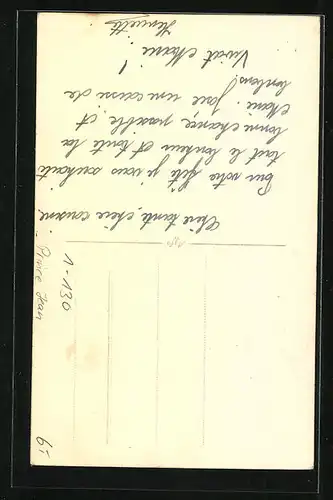 Chère tante, chère cousine,
Pour votre fête je vous souhaite
tout le bonheur et toute la
bonne chance possible et
Marie. J'ai reçu aussi de
bonbons!
Vivat Marie!
Henriette
1-130
65